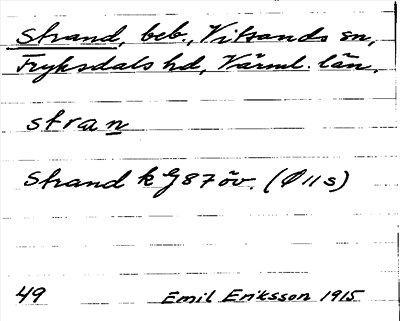 Strand, beb., Vitsands sn,
Fryksdals hd, Värml. län.
stran
Strand k G 87 öv. (Ø 11 s)
49 Emil Eriksson 1915